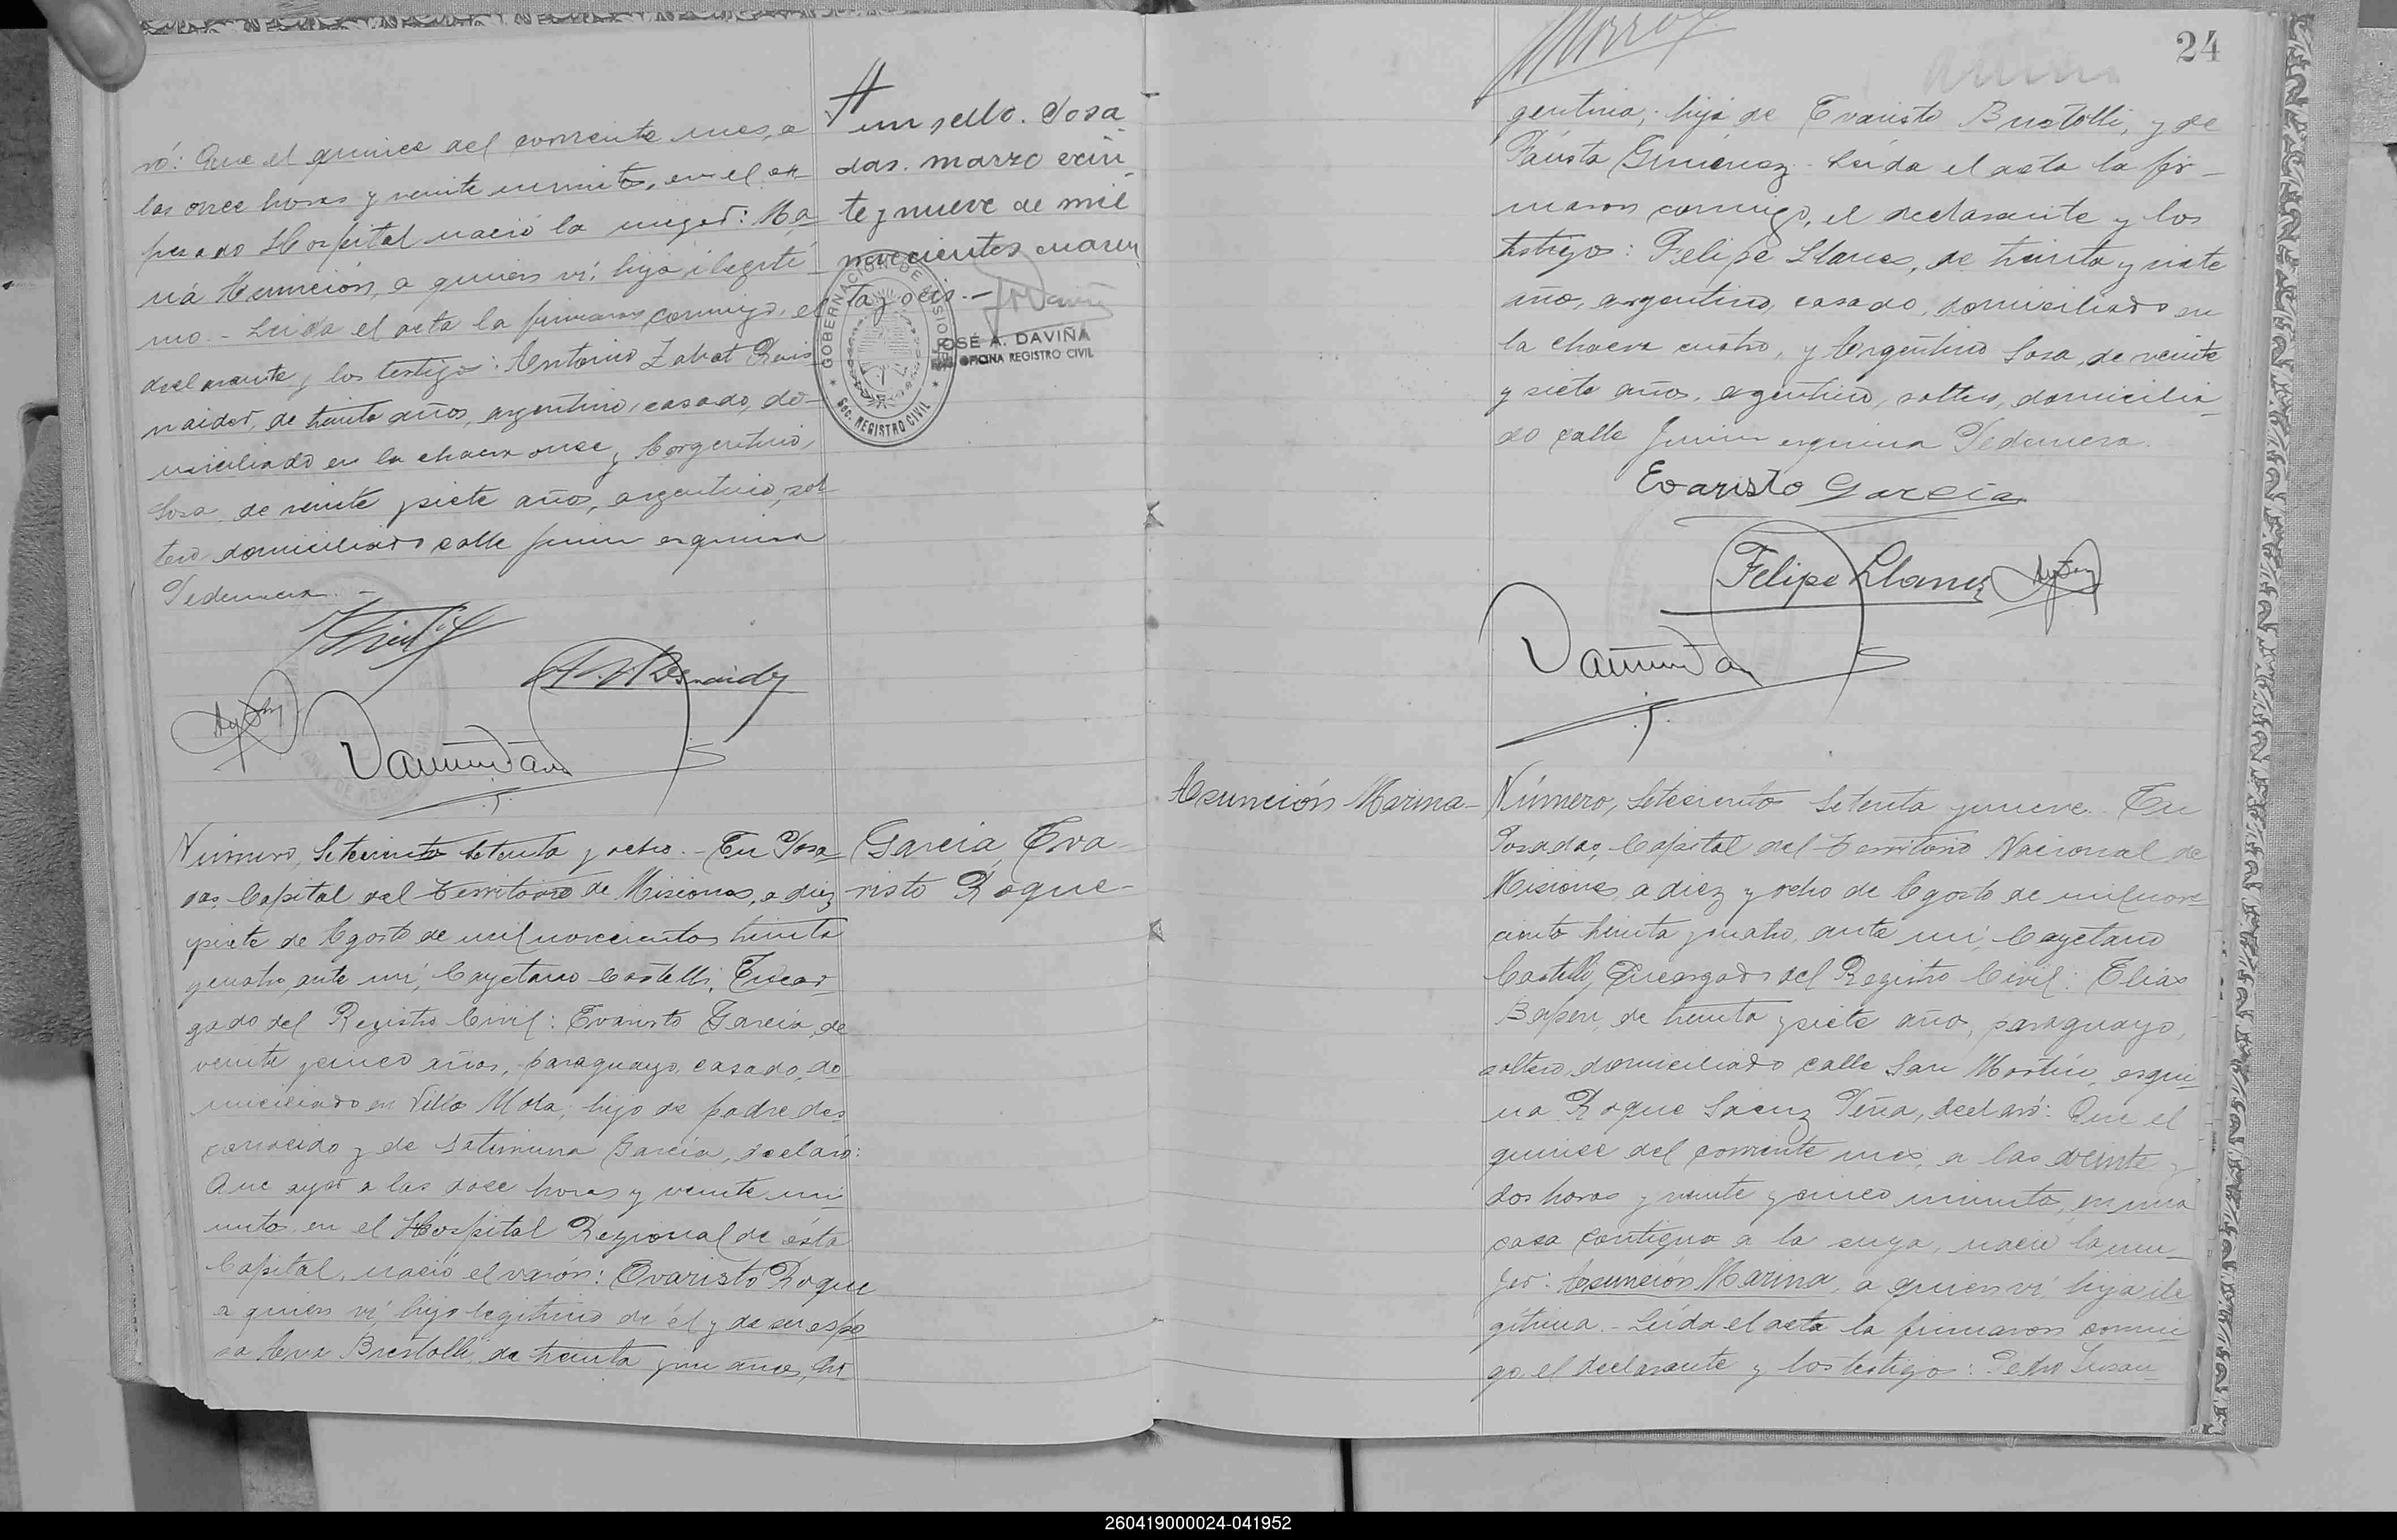 ró: Que el quince del corriente mes, a
las once horas y veinte minutos, en el ex-
presado Hospital nació la mujer: Ma-
ría Asunción, a quien ví, hija ilegíti-
ma. - Leída el acta la firmaron conmigo, el
declarante y los testigos: Antonio Zabat Res-
naider, de treinta años, argentino, casado, do-
miciliado en la chacra once, y Argentino
Sosa, de veinte y siete años, argentino, sol-
tero domiciliado calle Junin esquina
Pedernera. -
un sello. Posa-
das. marzo vein-
te y nueve de mil
novecientos cuaren-
ta y ocho. -
GOBERNACION DE MISIONES
SEC. REGISTRO CIVIL
JOSÉ A. DAVIÑA
OFICINA REGISTRO CIVIL
Número, Setecientos Setenta y ocho. - En Posa-
das, Capital del Territorio de Misiones, a diez
y siete de Agosto de mil novecientos treinta
y cuatro, ante mí, Cayetano Castelli, Encar-
gado del Registro Civil: Evaristo Garcia, de
veinte y cinco años, paraguayo, casado, do-
miciliado en Villa Mola, hijo de padre des-
conocido y de Saturnina Garcia, declaró:
Que ayer a las doce horas y veinte mi-
nutos, en el Hospital Regional de ésta
Capital, nació el varón: Evaristo Roque
a quien ví, hijo legítimo de él y de su espo-
sa Ana Brestolli, de treinta y un años, ar-
Garcia, Eva-
risto Roque-
24
gentina, hija de Evaristo Brestolli, y de
Fausta Gimenez. - Leída el acta la fir-
maron conmigo, el declarante y los
testigos: Felipe Llanes, de treinta y siete
años, argentino, casado, domiciliado en
la chacra cuatro, y Argentino Sosa, de veinte
y siete años, argentino, soltero, domicilia-
do calle Junin esquina Pedernera.
Evaristo Garcia
Felipe Llanes
Asunción Marina-
Número, Setecientos Setenta y nueve. En
Posadas, Capital del Territorio Nacional de
Misiones, a diez y ocho de Agosto de mil nove-
cientos treinta y cuatro, ante mí, Cayetano
Castelli, Encargado del Registro Civil: Elias
de treinta y siete años, paraguayo,
soltero, domiciliado calle San Martín, esqui-
na Roque Saenz Peña, declaró: Que el
quince del corriente mes, a las veinte y
dos horas y veinte y cinco minutos, en una
casa contigua a la suya, nació la mu-
jer: Asunción Marina, a quien ví, hija ile-
gítima. - Leída el acta la firmaron conmi-
go, el declarante y los testigos: Pedro
260419000024-041952